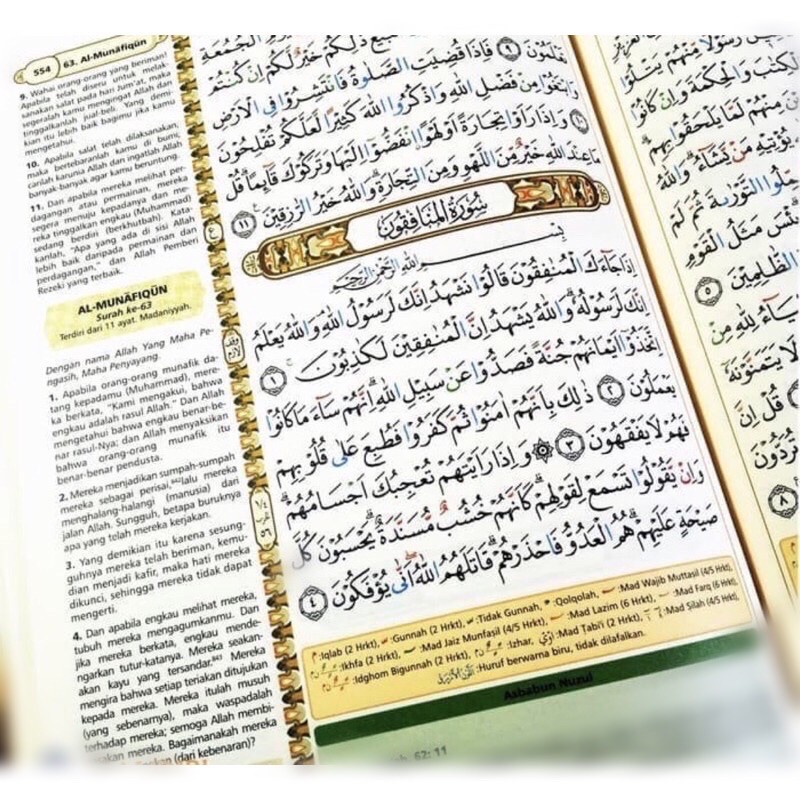 554
63. Al-Munāfiqūn
9. Wahai orang-orang yang beriman!
Apabila telah diseru untuk melak-
sanakan salat pada hari Jum'at, maka
segeralah kamu mengingat Allah dan
tinggalkanlah jual-beli. Yang demi-
kian itu lebih baik bagimu jika kamu
mengetahui.
10. Apabila salat telah dilaksanakan,
maka bertebaranlah kamu di bumi;
carilah karunia Allah dan ingatlah Allah
banyak-banyak agar kamu beruntung.
11. Dan apabila mereka melihat per-
dagangan atau permainan, mereka
segera menuju kepadanya dan me-
reka tinggalkan engkau (Muhammad)
sedang berdiri (berkhutbah). Kata-
kanlah, "Apa yang ada di sisi Allah
lebih baik daripada permainan dan
perdagangan," dan Allah Pemberi
Rezeki yang terbaik.
AL-MUNĀFIQŪN
Surah ke-63
Terdiri dari 11 ayat. Madaniyyah.
Dengan nama Allah Yang Maha Pe-
ngasih, Maha Penyayang.
1. Apabila orang-orang munafik da-
tang kepadamu (Muhammad), mere-
ka berkata, "Kami mengakui, bahwa
engkau adalah rasul Allah." Dan Allah
mengetahui bahwa engkau benar-be-
nar rasul-Nya; dan Allah menyaksikan
bahwa orang-orang munafik itu
benar-benar pendusta.
2. Mereka menjadikan sumpah-sumpah
mereka sebagai perisai,⁸⁴²lalu mereka
menghalang-halangi (manusia) dari
jalan Allah. Sungguh, betapa buruknya
apa yang telah mereka kerjakan.
3. Yang demikian itu karena sesung-
guhnya mereka telah beriman, kemu-
dian menjadi kafir, maka hati mereka
dikunci, sehingga mereka tidak dapat
mengerti.
4. Dan apabila engkau melihat mereka,
tubuh mereka mengagumkanmu. Dan
jika mereka berkata, engkau mende-
ngarkan tutur-katanya. Mereka seakan-
akan kayu yang tersandar.⁸⁴³ Mereka
mengira bahwa setiap teriakan ditujukan
kepada mereka. Mereka itulah musuh
(yang sebenarnya), maka waspadalah
terhadap mereka; semoga Allah membi-
nasakan mereka. Bagaimanakah mereka
(dari kebenaran)?
ذٰلِكُمْ خَيْرٌ لَّكُمْ اِنْ كُنْتُمْ
تَعْلَمُوْنَ ٩ فَاِذَا قُضِيَتِ الصَّلٰوةُ فَانْتَشِرُوْا فِى الْاَرْضِ
وَابْتَغُوْا مِنْ فَضْلِ اللّٰهِ وَاذْكُرُوا اللّٰهَ كَثِيْرًا لَّعَلَّكُمْ تُفْلِحُوْنَ
١٠ وَاِذَا رَاَوْا تِجَارَةً اَوْ لَهْوًا ۨانْفَضُّوْٓا اِلَيْهَا وَتَرَكُوْكَ قَاۤىِٕمًاۗ قُلْ
مَا عِنْدَ اللّٰهِ خَيْرٌ مِّنَ اللَّهْوِ وَمِنَ التِّجَارَةِۗ وَاللّٰهُ خَيْرُ الرّٰزِقِيْنَ ١١
سُوْرَةُ الْمُنَافِقُوْنَ
بِسْمِ اللّٰهِ الرَّحْمٰنِ الرَّحِيْمِ
اِذَا جَاۤءَكَ الْمُنٰفِقُوْنَ قَالُوْا نَشْهَدُ اِنَّكَ لَرَسُوْلُ اللّٰهِ ۘوَاللّٰهُ يَعْلَمُ
اِنَّكَ لَرَسُوْلُهٗ ۗوَاللّٰهُ يَشْهَدُ اِنَّ الْمُنٰفِقِيْنَ لَكٰذِبُوْنَ ١
اِتَّخَذُوْٓا اَيْمَانَهُمْ جُنَّةً فَصَدُّوْا عَنْ سَبِيْلِ اللّٰهِ ۗاِنَّهُمْ سَاۤءَ مَا كَانُوْا
يَعْمَلُوْنَ ٢ ذٰلِكَ بِاَنَّهُمْ اٰمَنُوْا ثُمَّ كَفَرُوْا فَطُبِعَ عَلٰى قُلُوْبِهِمْ
فَهُمْ لَا يَفْقَهُوْنَ ٣ ۞ وَاِذَا رَاَيْتَهُمْ تُعْجِبُكَ اَجْسَامُهُمْۗ
وَاِنْ يَّقُوْلُوْا تَسْمَعْ لِقَوْلِهِمْۗ كَاَنَّهُمْ خُشُبٌ مُّسَنَّدَةٌ ۗيَحْسَبُوْنَ كُلَّ
صَيْحَةٍ عَلَيْهِمْۗ هُمُ الْعَدُوُّ فَاحْذَرْهُمْۗ قَاتَلَهُمُ اللّٰهُ ۖاَنّٰى يُؤْفَكُوْنَ ٤
:Iqlab (2 Hrkt), :Gunnah (2 Hrkt), :Tidak Gunnah, :Qolqolah, :Mad Wajib Muttasil (4/5 Hrkt),
:Ikhfa (2 Hrkt), :Mad Jaiz Munfasil (4/5 Hrkt), :Mad Lazim (6 Hrkt), :Mad Farq (6 Hrkt),
:Idghom Bigunnah (2 Hrkt), :Izhar, :Mad Tabi'i (2 Hrkt), :Mad Silah (4/5 Hrkt),
:Huruf berwarna biru, tidak dilafalkan.
Asbabun Nuzul
62: 11